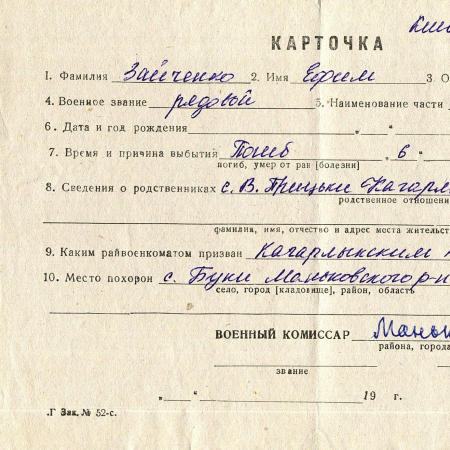 КАРТОЧКА
1. Фамилия Зайченко 2. Имя Ефим 3. О
4. Военное звание рядовой 5. Наименование части
6. Дата и год рождения „ “
7. Время и причина выбытия Погиб „ 6 “
погиб, умер от ран [болезни]
8. Сведения о родственниках с. В. Прицьки Кагарл
родственное отношени
фамилия, имя, отчество и адрес места жительст
9. Каким райвоенкоматом призван Кагарлыкским
10. Место похорон с. Буки Маньковского р-н
село, город [кладовище], район, область
ВОЕННЫЙ КОМИССАР Мань
района, города
звание
„ “ 19 г.
.Г Зак. № 52-с.